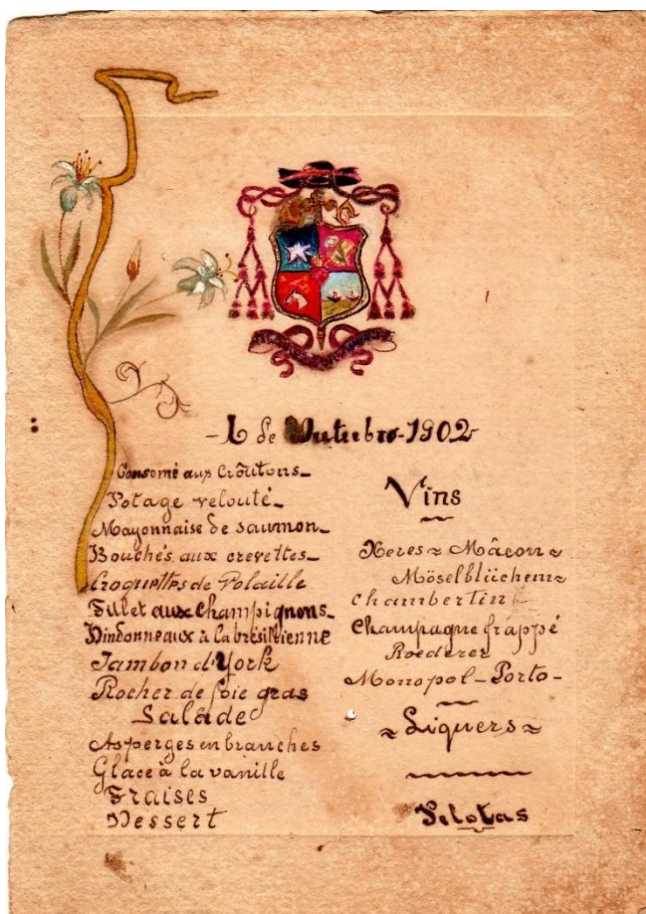 -1 de Outubro-1902
Consomé aux Croûtons-
Potage velouté-
Mayonnaise de saumon-
Bouchés aux crevettes-
Croquettes de Volaille
Fillet aux Champignons-
Dindonneaux à la brésilienne
Jambon d'York
Rocher de foie gras
Salade
Asperges en branches
Glace à la vanille
Fraises
Dessert
Vins
Xeres ~ Mâcon ~
Möselblüchem ~
Chambertin
Champagne frappé
Roederer
Monopol - Porto -
~ Liquers ~
Pelotas